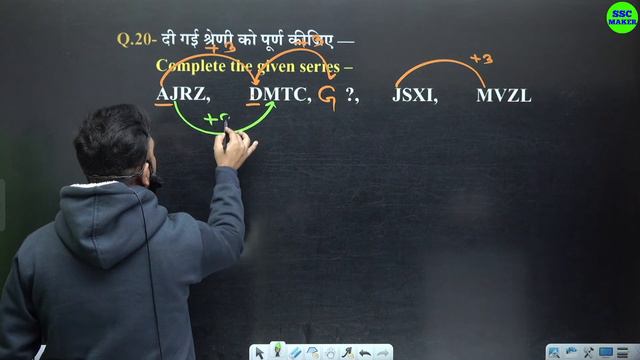 SSC
MAKER
Q.20- दी गई श्रेणी को पूर्ण कीजिए —
+3
Complete the given series –
+3
AJRZ, DMTC, G ?, JSXI, MVZL